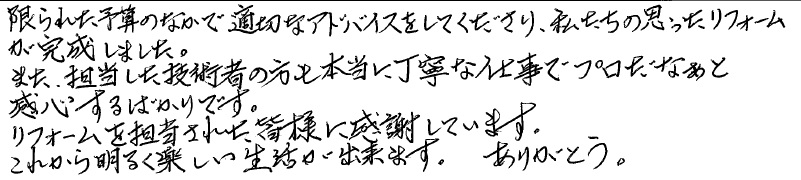 限られた予算のなかで適切なアドバイスをしてくださり、私たちの思ったリフォーム
が完成しました。
また、担当した技術者の方も本当に丁寧な仕事でプロだなぁと
感心するばかりです。
リフォームを担当された皆様に感謝しています。
これから明るく楽しい生活が出来ます。 ありがとう。